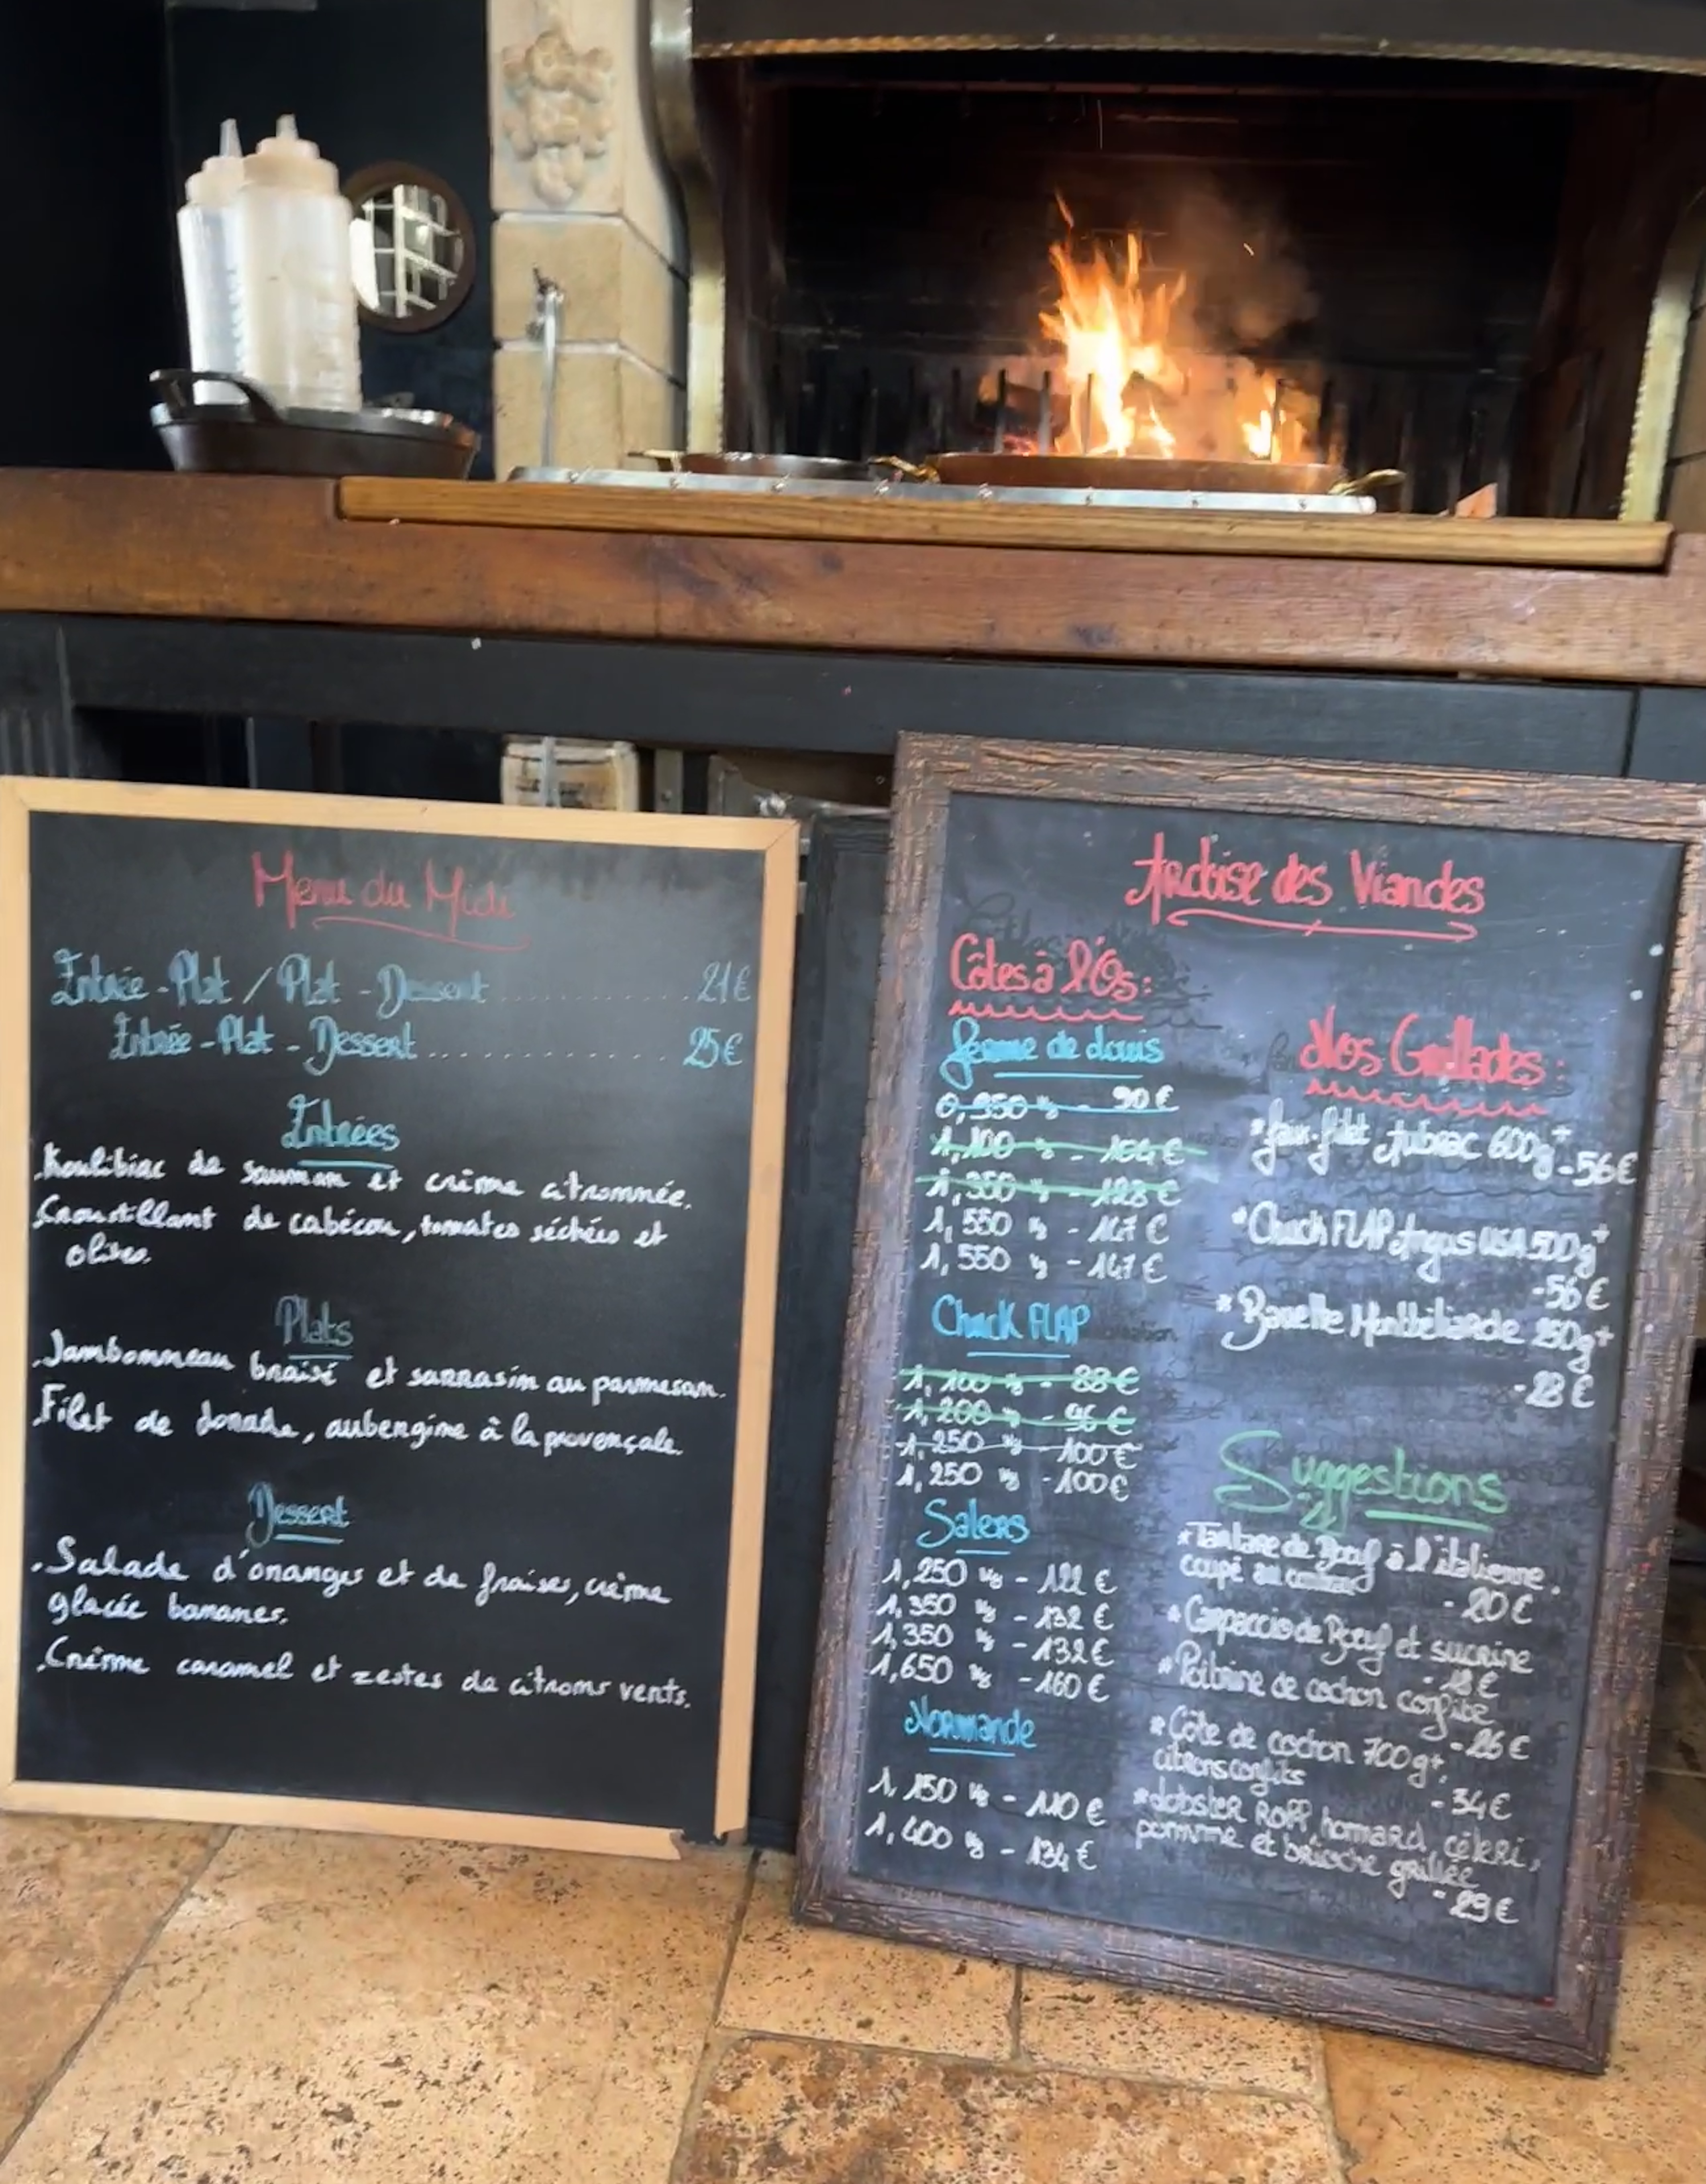 Menu du Midi
Entrée - Plat / Plat - Dessert ............ 21€
Entrée - Plat - Dessert .............. 25€
Entrées
. Koulibiac de saumon et crème citronnée.
. Croustillant de cabécou, tomates séchées et
olives.
Plats
. Jambonneau braisé et sarrasin au parmesan.
. Filet de dorade, aubergine à la provençale.
Dessert
. Salade d'oranges et de fraises, crème
glacée bananes.
. Crème caramel et zestes de citrons verts.
Ardoise des Viandes
Côtes à l'Os :
0,950 kg - 90 €
1,100 kg - 104 €
1,350 kg - 128 €
1,550 kg - 147 €
1,550 kg - 147 €
Chuck FLAP
1,100 kg - 88 €
1,200 kg - 96 €
1,250 kg - 100 €
1,250 kg - 100 €
Salers
1,250 kg - 122 €
1,350 kg - 132 €
1,350 kg - 132 €
1,650 kg - 160 €
Normande
1,150 kg - 110 €
1,400 kg - 134 €
Nos Grillades :
* faux-filet Aubrac 600g+ - 56 €
* Chuck FLAP Angus USA 500g+
- 56 €
* Bavette Montbéliarde 250g+
- 28 €
Suggestions
* Tartare de Boeuf à l'italienne.
coupé au couteau
- 20 €
* Carpaccio de Boeuf et sucrine
- 18 €
* Poitrine de cochon confite
- 26 €
* Côte de cochon 700g+,
citrons confits
- 34 €
* Lobster Roll, homard, céleri,
pomme et brioche grillée
- 29 €